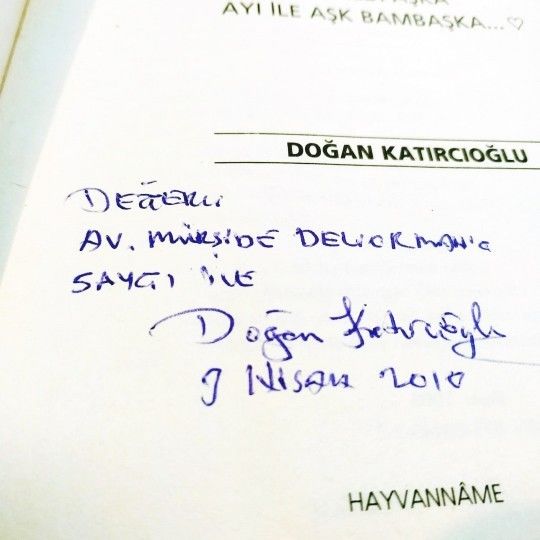 AYI İLE AŞK BAMBAŞKA...♡
DOĞAN KATIRCIOĞLU
DEĞERLİ
AV. MÜRŞİDE DELİORMAN'a
SAYGI İLE
Doğan Katırcıoğlu
9 NİSAN 2010
HAYVANNÂME